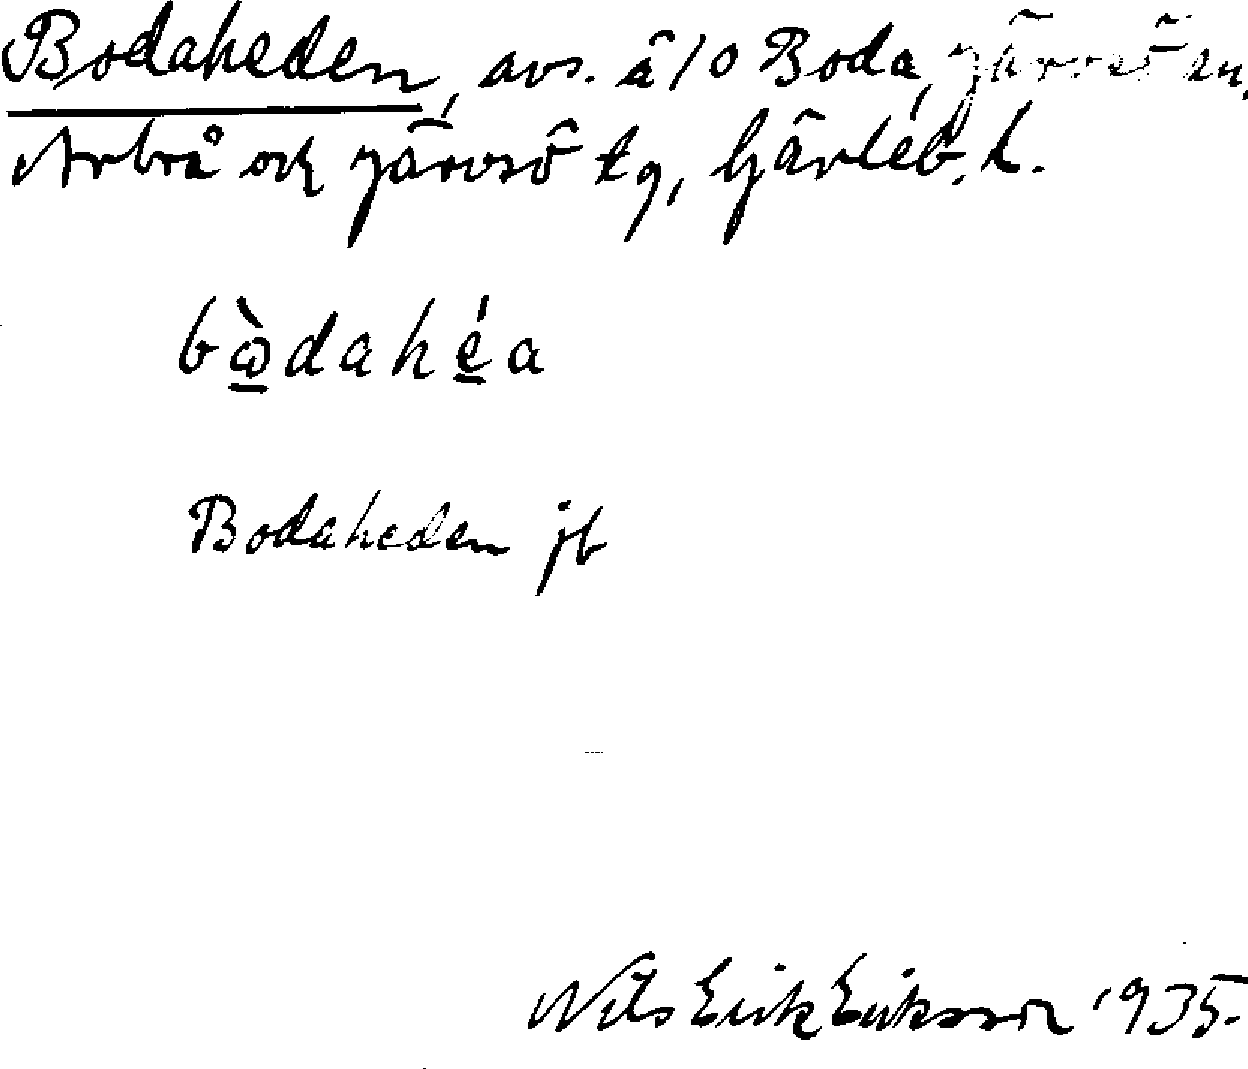 Bodaheden, avs. å 10 Boda, Järvsö sn,
Arbrå och Järvsö tg, Gävleb. l.
bὼ̲dahé̲a
Bodaheden jb
Nils Erik Eriksson 1935.